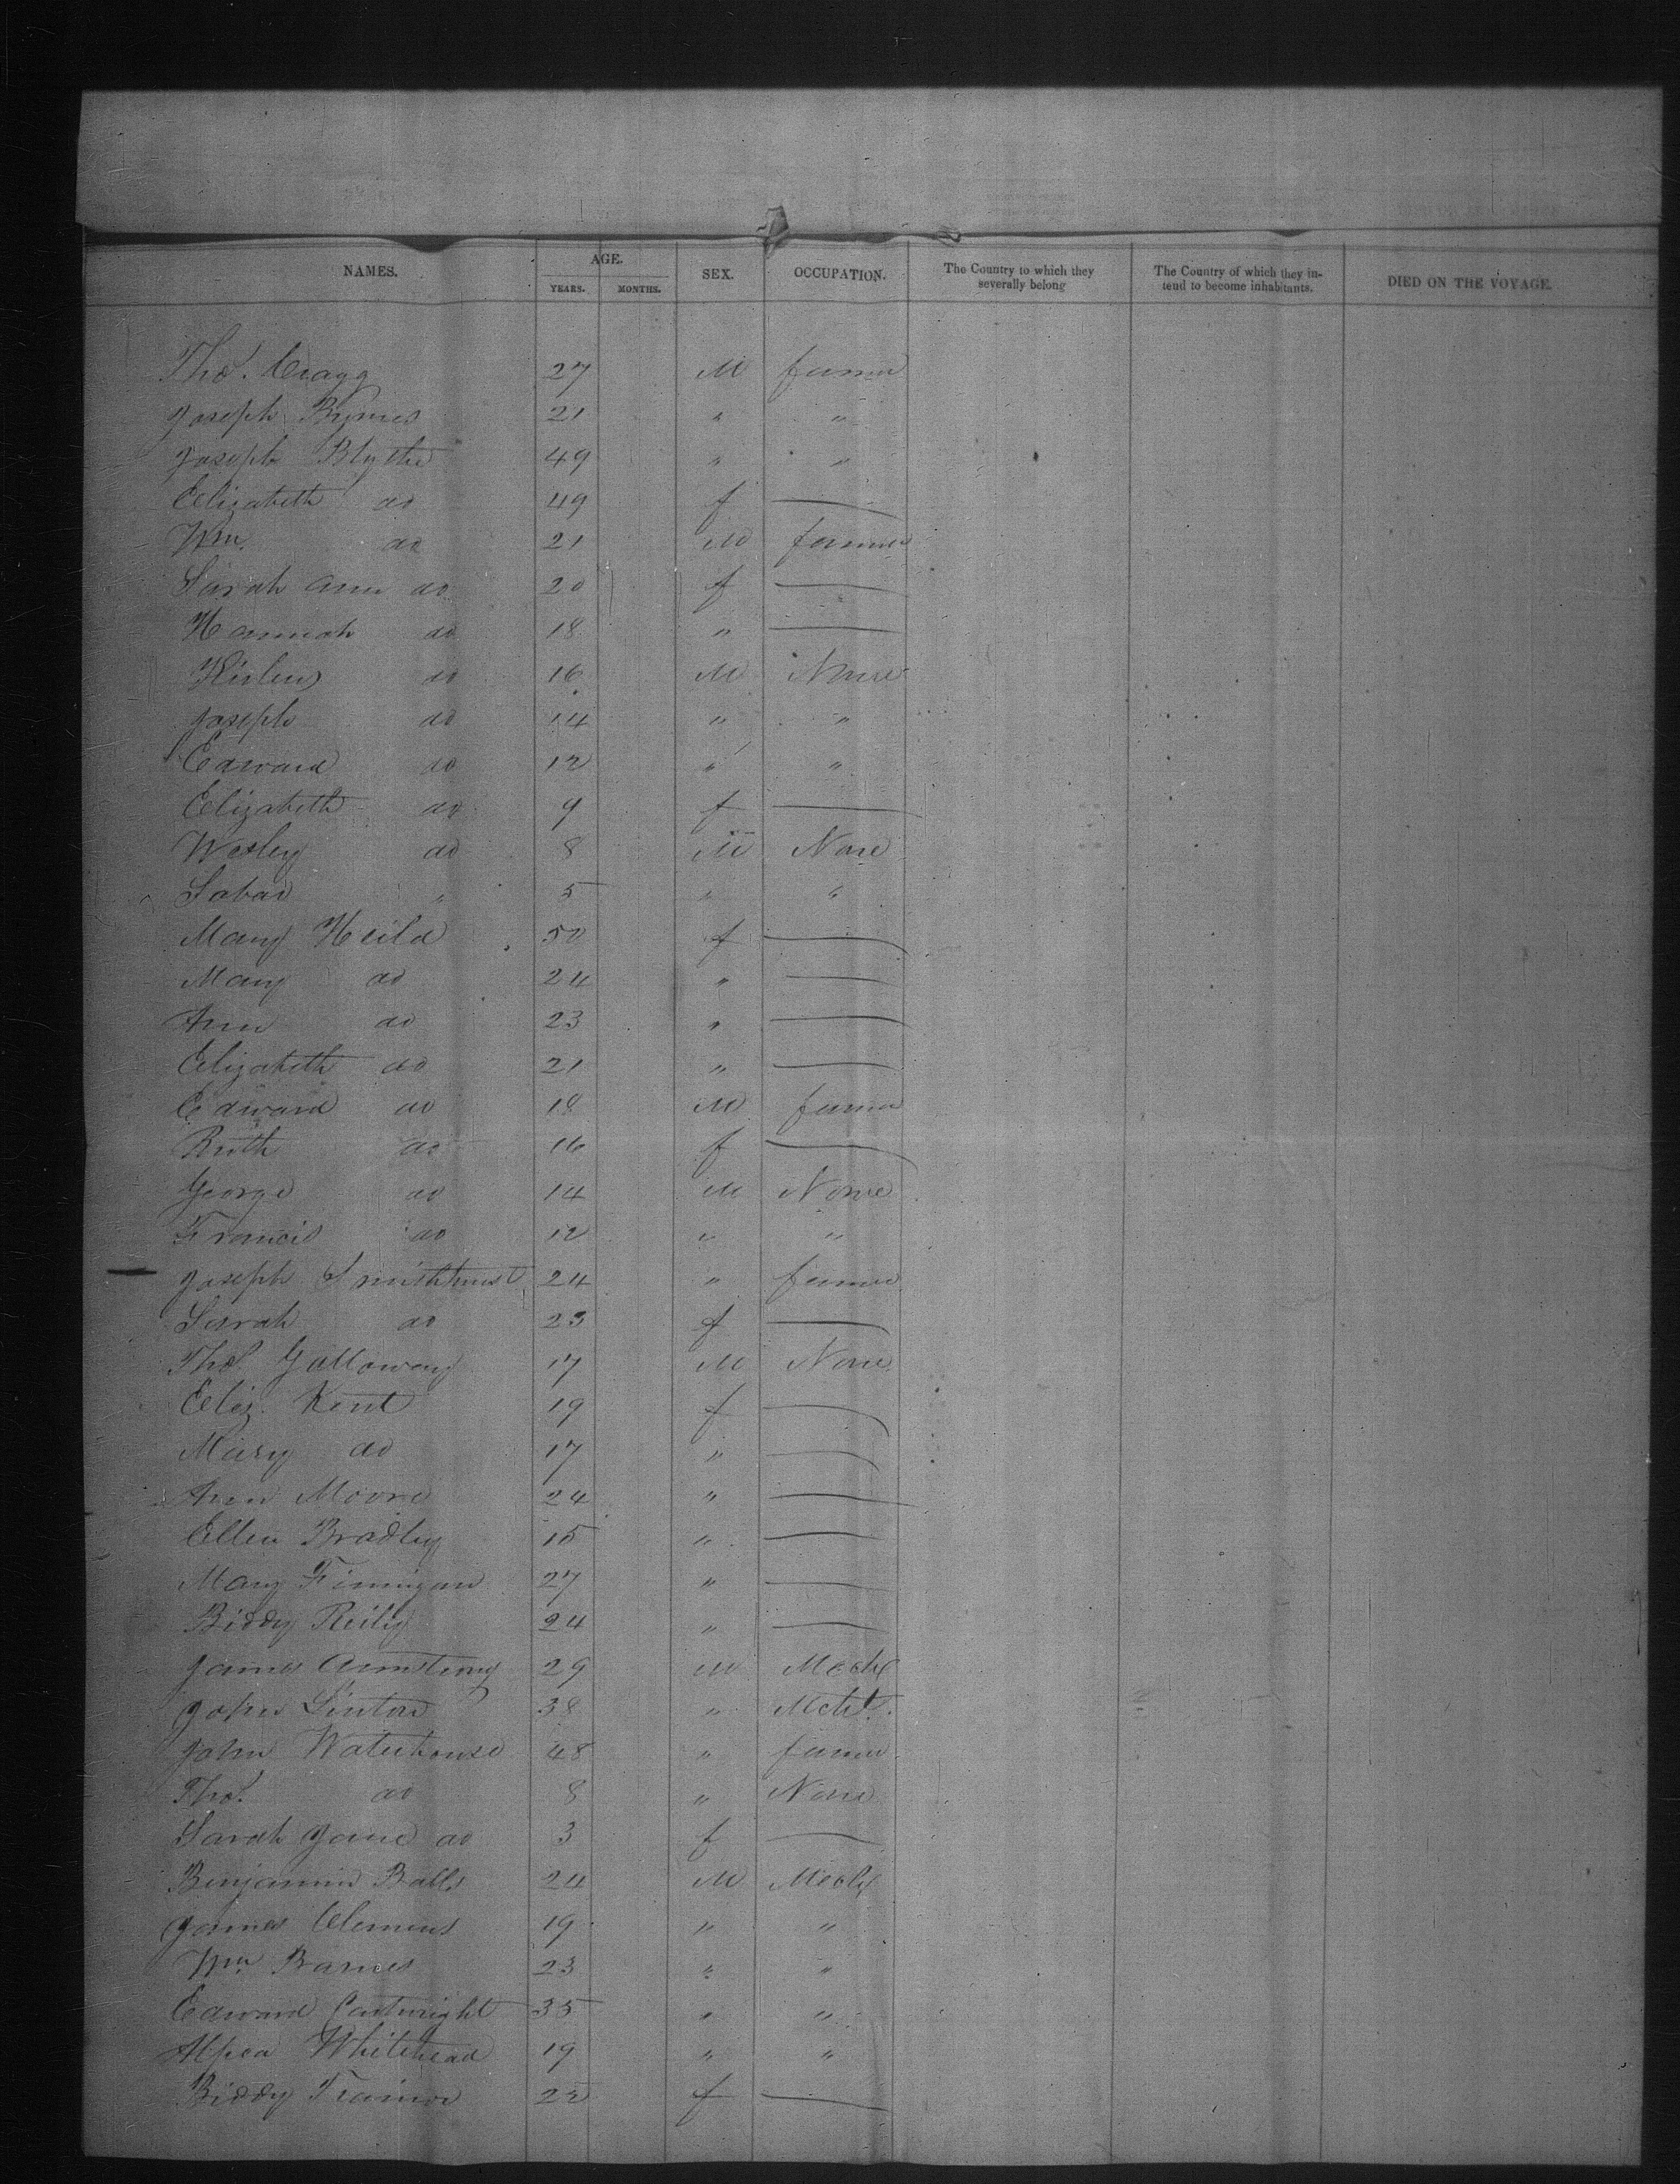 NAMES. AGE. SEX. OCCUPATION. The Country to which they severally belong The Country of which they intend to become inhabitants. DIED ON THE VOYAGE.
YEARS. MONTHS.
Thos. Cragg 27 M farmer
Joseph Byrnes 21 " "
Joseph Blythe 49 " "
Elizabeth do 49 f —
Wm. do 21 M farmer
Sarah Ann do 20 f —
Hannah do 18 " —
do 16 M None
Joseph do 14 " "
Edward do 12 " "
Elizabeth do 9 f —
Wesley do 8 M None
" 5 " "
Mary Heild 50 f —
Mary do 24 " —
Ann do 23 " —
Elizabeth do 21 " —
Edward do 18 M farmer
Ruth do 16 f —
George do 14 M None
Francis do 12 " "
Joseph Smithhurst 24 " farmer
Sarah do 23 f —
Thos. Galloway 17 M None
Eliz. Kent 19 f —
Mary do 17 " —
Ann Moore 24 " —
Ellen Bradley 15 " —
Mary Finnigan 27 " —
Biddy Reily 24 " —
James Armstrong 29 M Mech
John Linton 38 " Mcht.
John Waterhouse 48 " farmer
Thos. do 8 " None
Sarah Jane do 3 f —
Benjamin Balls 24 M Mech
James Clemens 19 " "
Wm Barnes 23 " "
Edward Cartwright 35 " "
Whitehead 19 " "
Biddy Trainor 22 f —